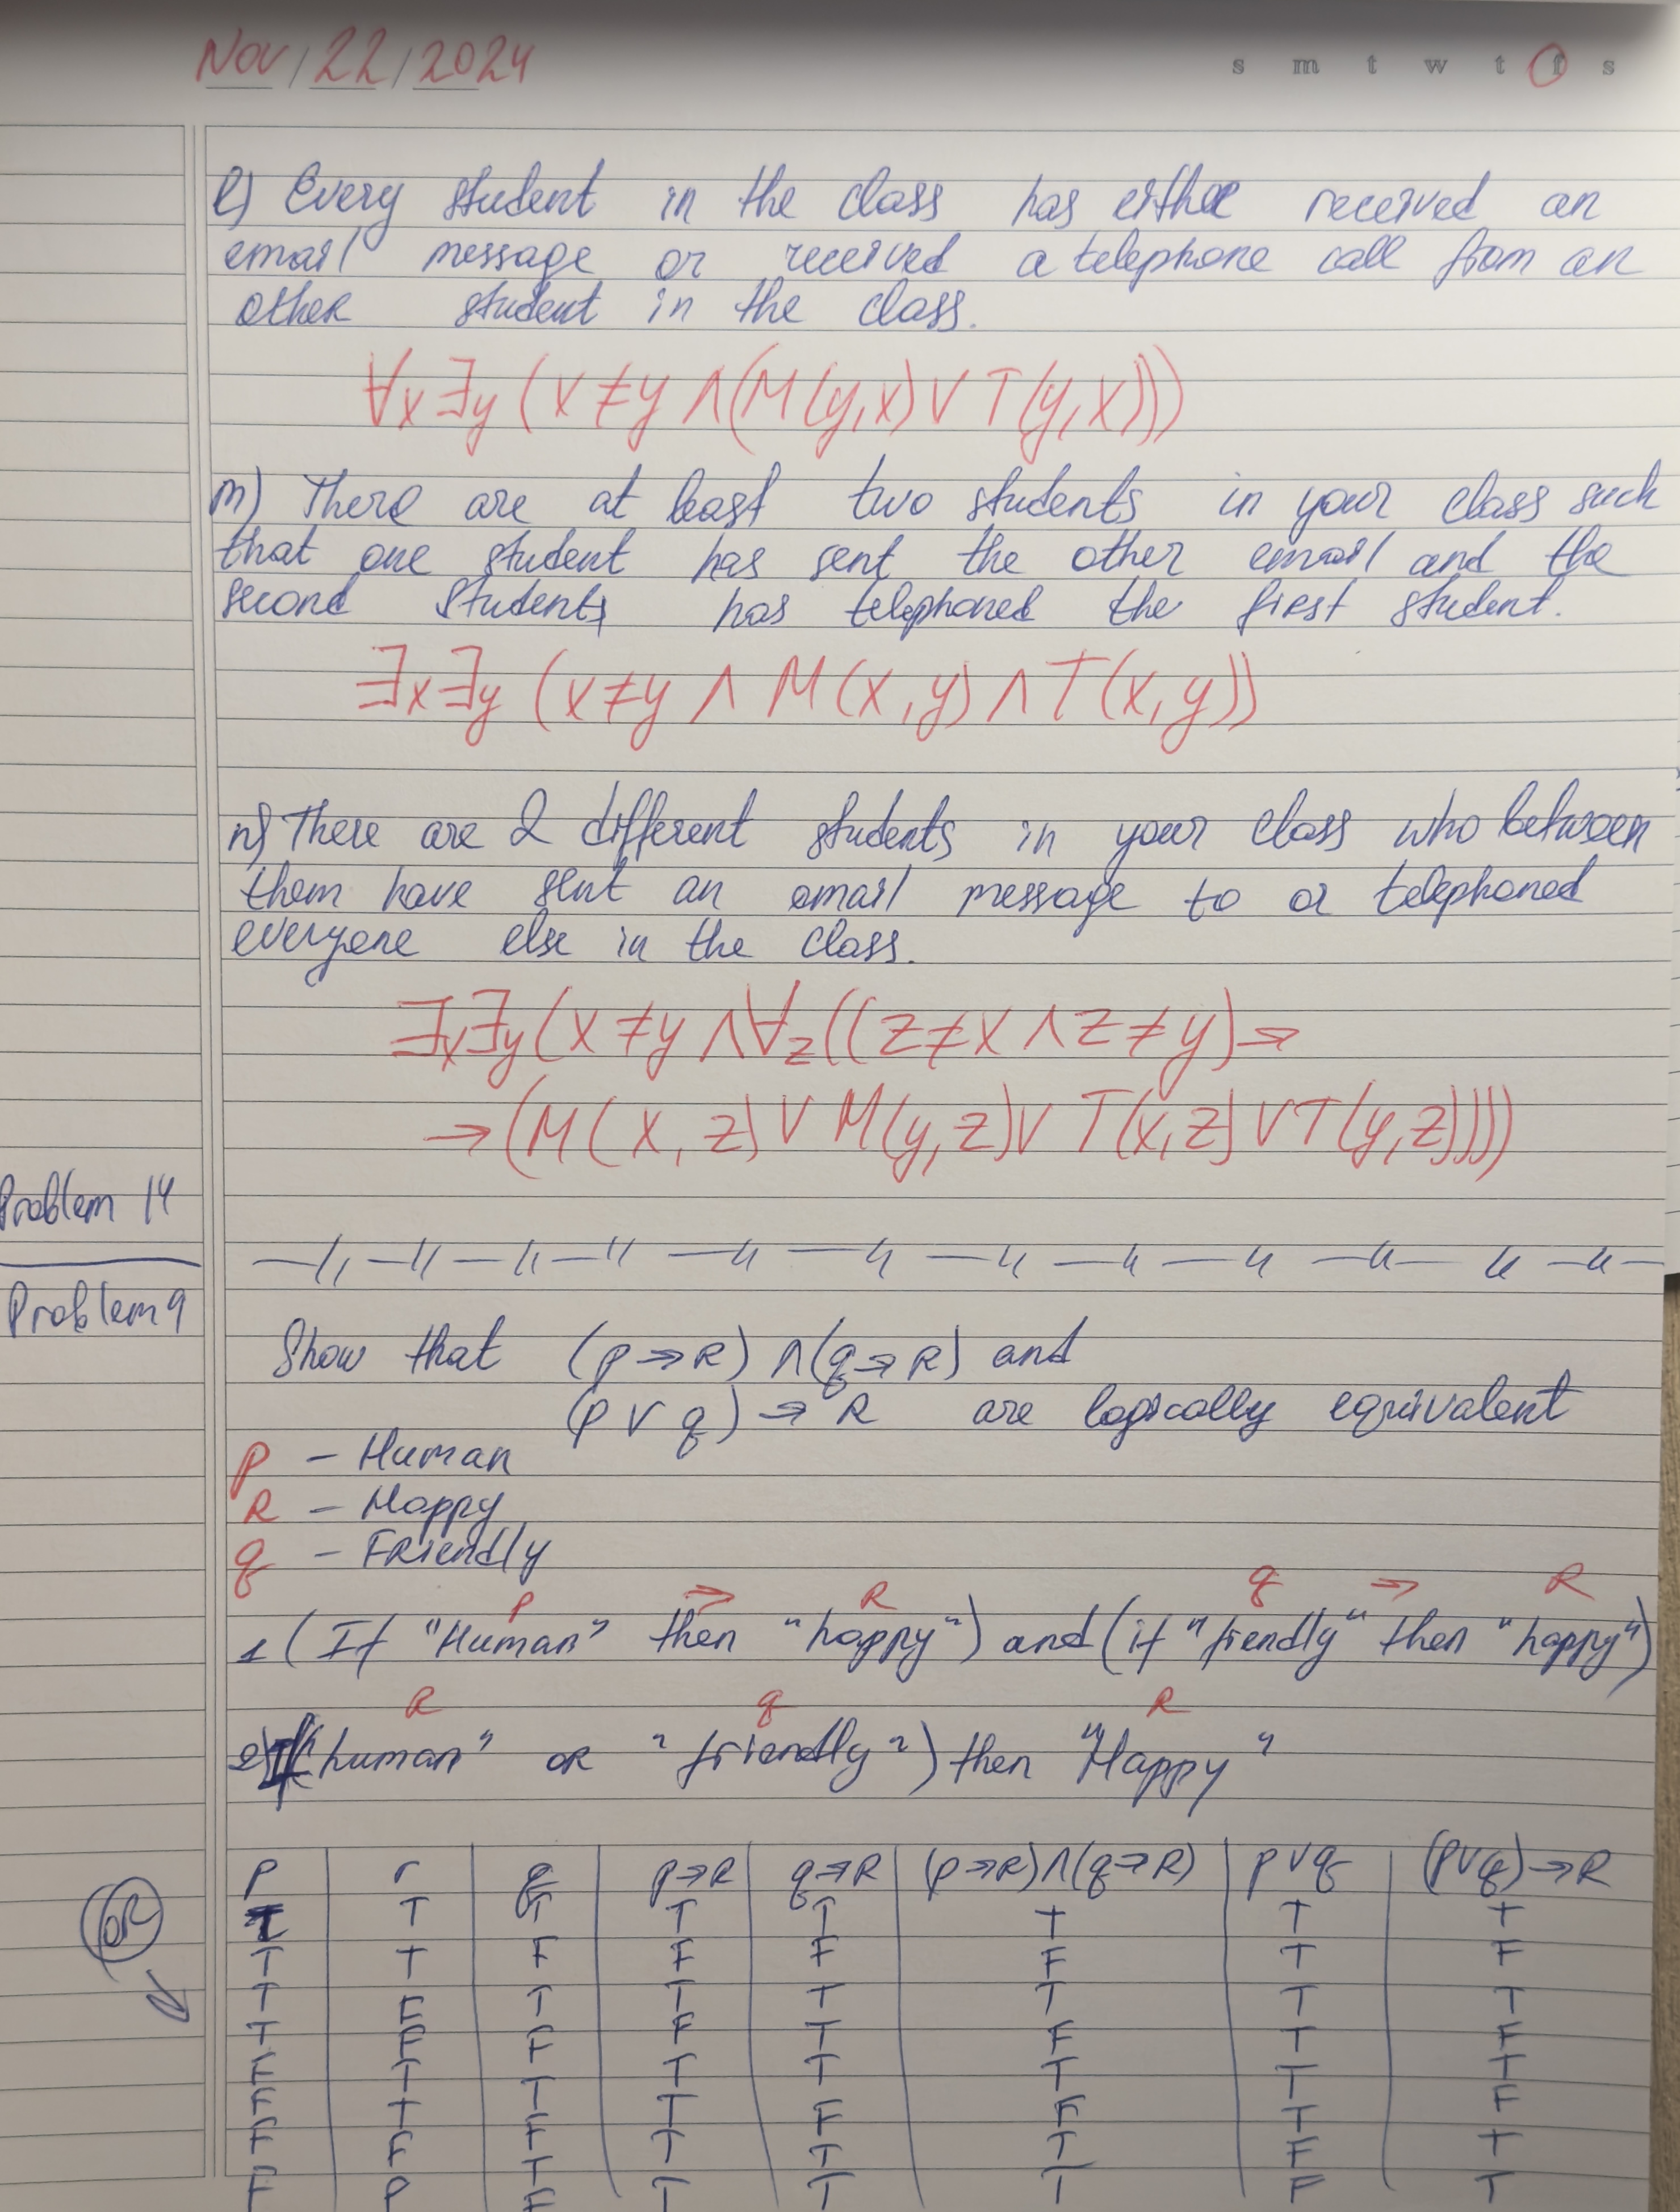 Nov / 22 / 2024
s m t w t f s
l) Every student in the class has either received an
email message or received a telephone call from an
other student in the class.
∀x∃y (x≠y ∧(M(y,x) ∨ T(y,x)))
m) There are at least two students in your class such
that one student has sent the other email and the
second students has telephoned the first student.
∃x∃y (x≠y ∧ M(x,y) ∧ T(x,y))
n) There are 2 different students in your class who between
them have sent an email message to or telephoned
everyone else in the class.
∃x∃y(x≠y ∧∀z((z≠x ∧ z≠y)→
→(M(x,z) ∨ M(y,z) ∨ T(x,z) ∨ T(y,z))))
Problem 14
Problem 9
Show that (p→R) ∧(q→R) and
(p ∨ q) → R are logically equivalent
p – Human
R – Happy
q – Friendly
p → R q → R
1 (If "Human" then "happy") and (if "fiendly" then "happy")
R q R
2) If ("human" or "friendly") then "Happy"
p r q p→R q→R (p→R)∧(q→R) p∨q (p∨q)→R
OR
T T T T T T T T
T T F F F F T F
T F T T T T T T
T F F F T F T F
F T T T T T T T
F T F T F F T F
F F T T T T F T
F F F T T T F T